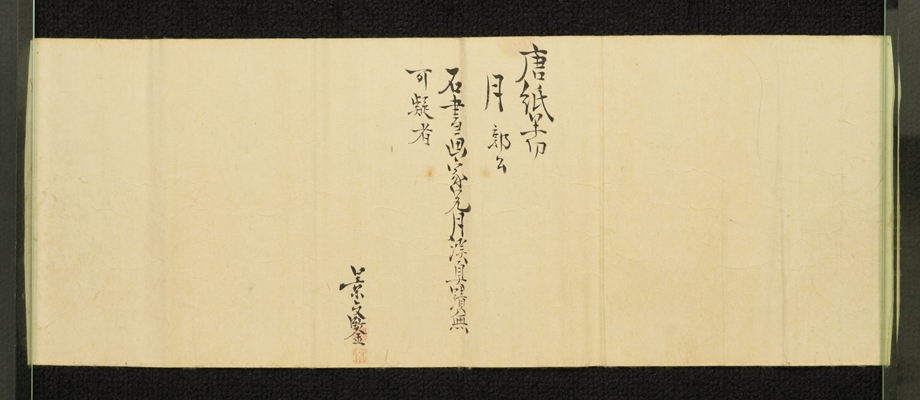 唐紙半切
月 郭公
右書画家兄月溪真蹟無
可疑者
景文鑒